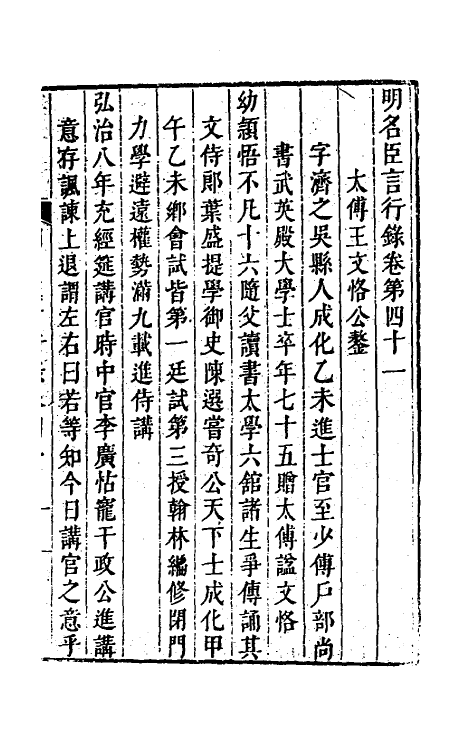 明名臣言行錄卷第四十一
太傅王文恪公鏊
字濟之吳縣人成化乙未進士官至少傅戶部尚
書武英殿大學士卒年七十五贈太傅諡文恪
幼穎悟不凡十六隨父讀書太學六舘諸生爭傳誦其
文侍郎葉盛提學御史陳選嘗奇公天下士成化甲
午乙未鄉會試皆第一廷試第三授翰林編修閉門
力學避遠權勢滿九載進侍講
弘治八年充經筵講官時中官李廣怙寵干政公進講
意存諷諫上退謂左右曰若等知今日講官之意乎